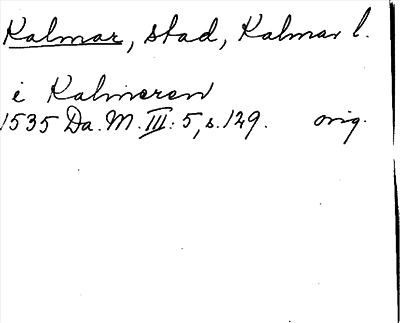 Kalmar, stad, Kalmar l.
i Kalmeren
1535 Da. M. III: 5, s. 129. orig.